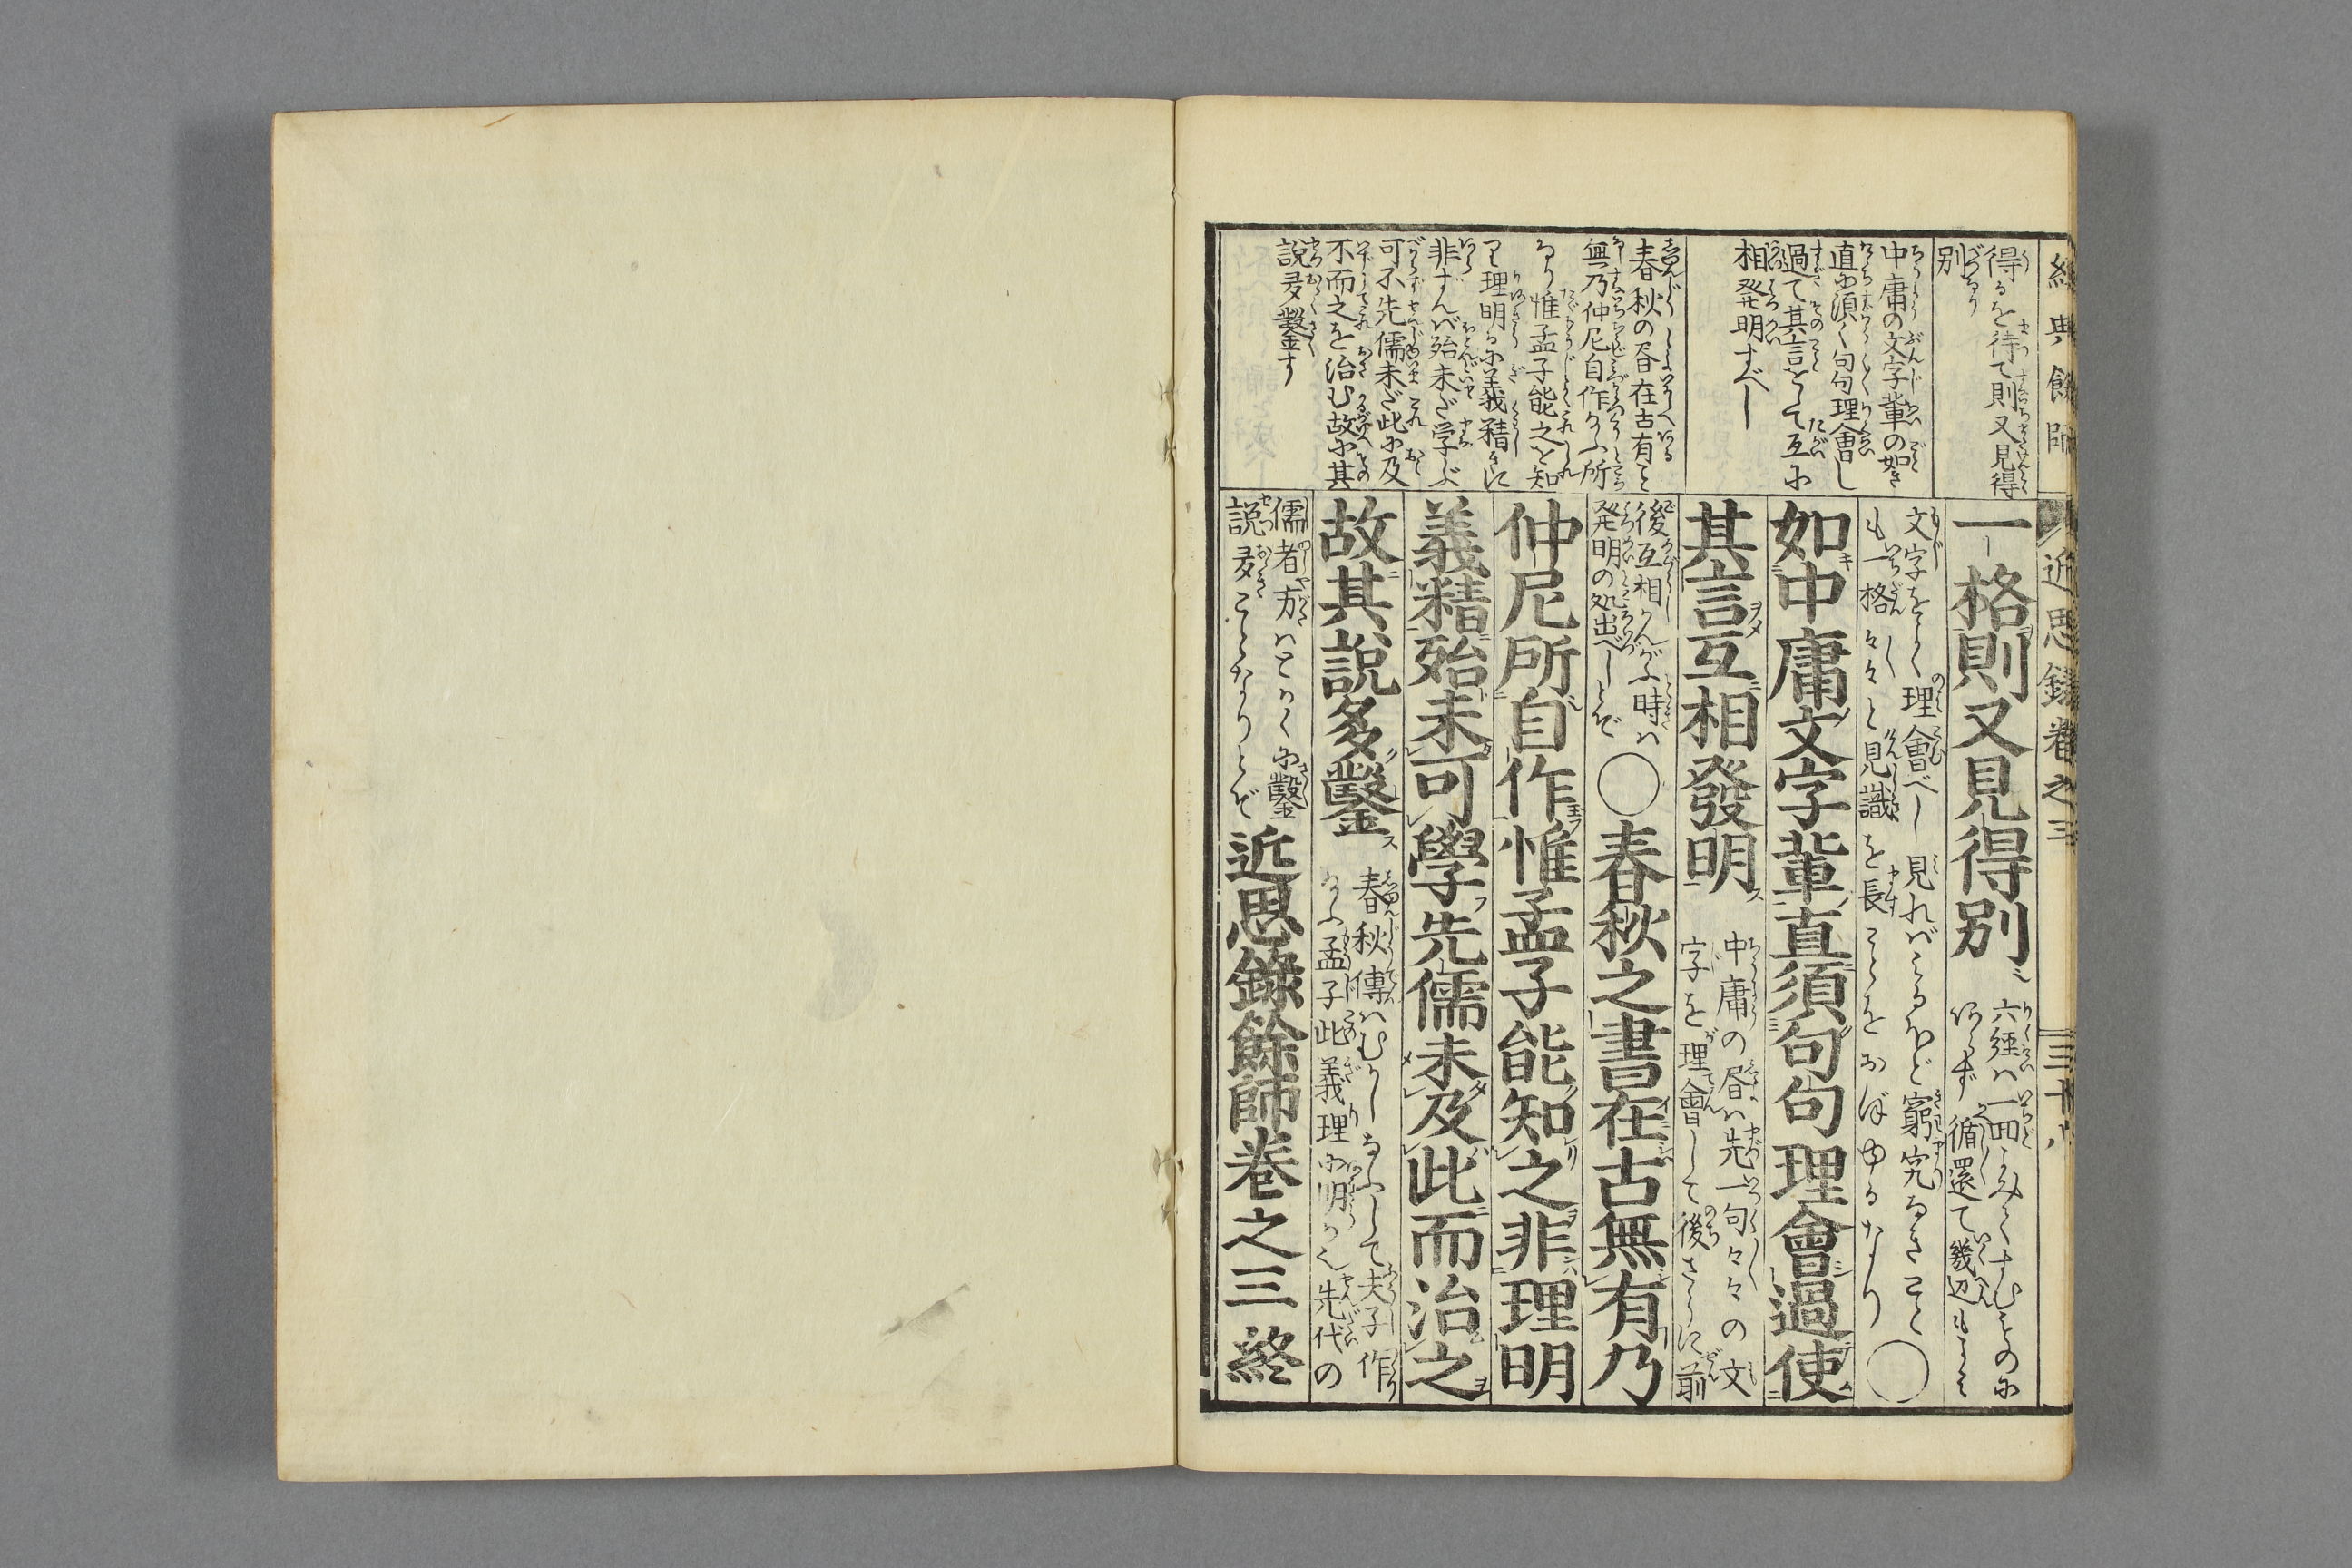 經典餘師
近思錄卷之三
三十八
得るを待て則又見得
別なり
中庸の文字輩の如き
直に須く句句理會し
過て其言をして互に
相発明すべし
春秋の書在古有こと
無乃仲尼自作玉ふ所
なり惟孟子能之を知
り理明かに義精きに
非ずんば殆未だ学ぶ
可不先儒未だ此に及
不而之を治む故に其
説多鑿す
一格則又見得別
六經は一回よみてすむものに
あらず循還て幾辺もよみ
文字をとく理會べし見ればみるほど窮究なきこと
も一格々々と見識を長ことをおぼゆるなり〇
如中庸文字輩直須句句理會過使
其言互相發明
中庸の書は先一句々々の文
字を理會して後さらに前
後互相かんがふ時は
発明の処出べしとぞ
〇春秋之書在古無有乃
仲尼所自作惟孟子能知之非理明
義精殆未可學先儒未及此而治之
故其説多鑿
春秋傳はむかしなふして夫子作
たまふ孟子此義理に明かく先代の
儒者方はとかくに鑿
説多きことなりとぞ
近思錄餘師卷之三終